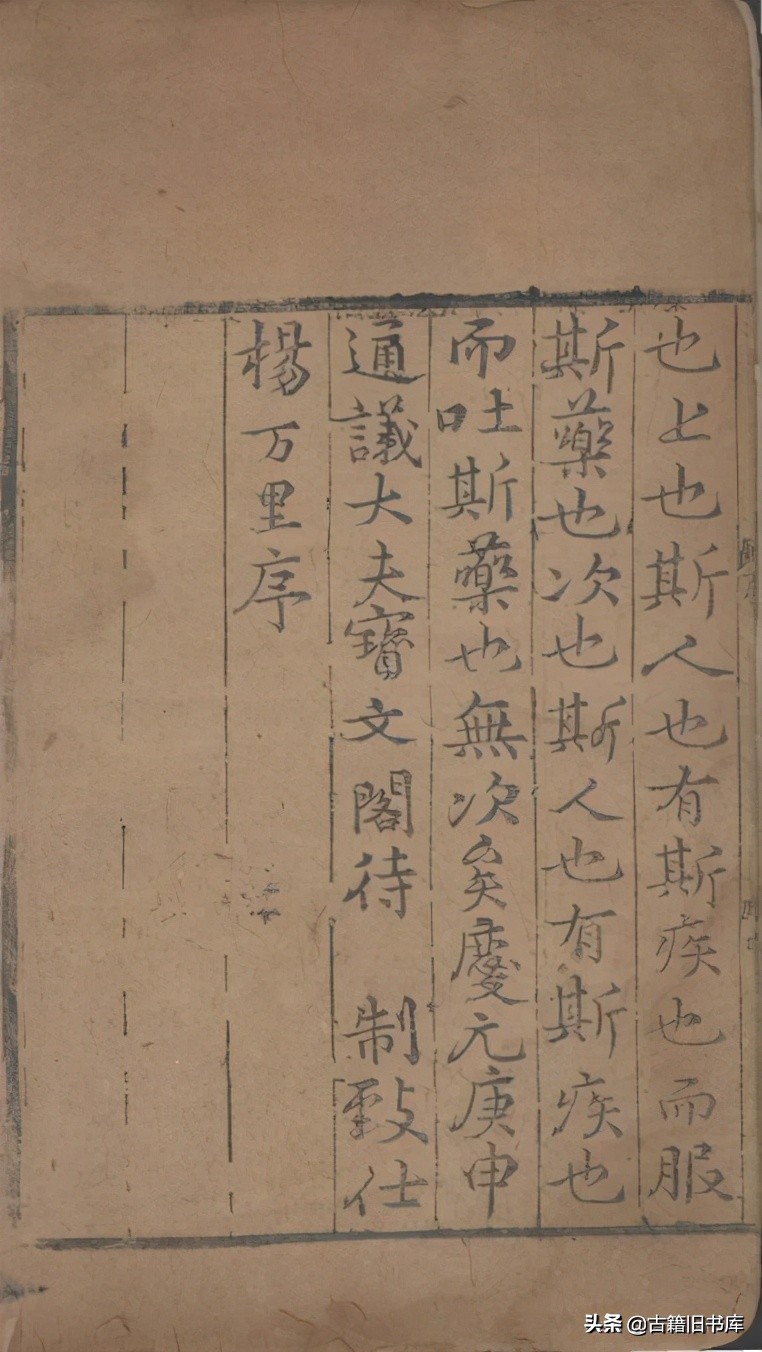 也上也斯人也有斯疾也而服
斯藥也次也斯人也有斯疾也
而吐斯藥也無次矣慶元庚申
通議大夫寶文閣待 制致仕
楊万里序
头条 @古籍旧书库